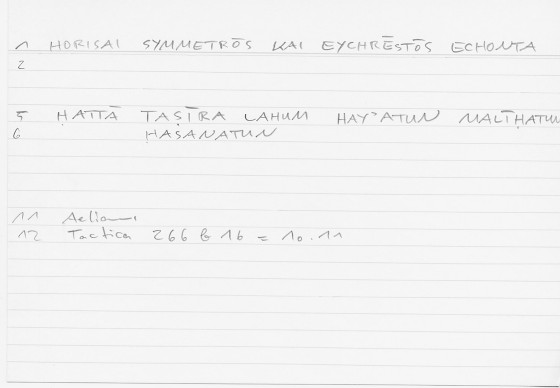 1 HORISAI SYMMETRŌS KAI EYCHRĒSTŌS ECHONTA
2
5 ḤATTĀ TAṢĪRA LAHUM HAYʾATUN MALĪḤATUN
6 ḤASANATUN
11
12 Tactica 266 b 16 = 10.11